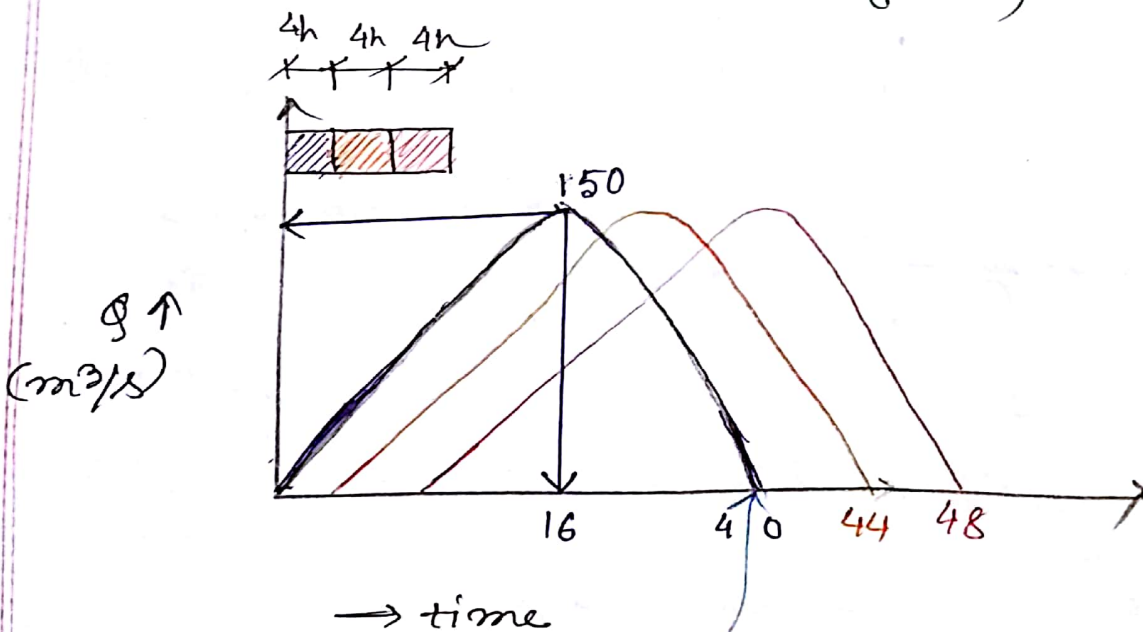 4h 4h 4h
150
Q ↑
(m³/s)
16 40 44 48
→ time